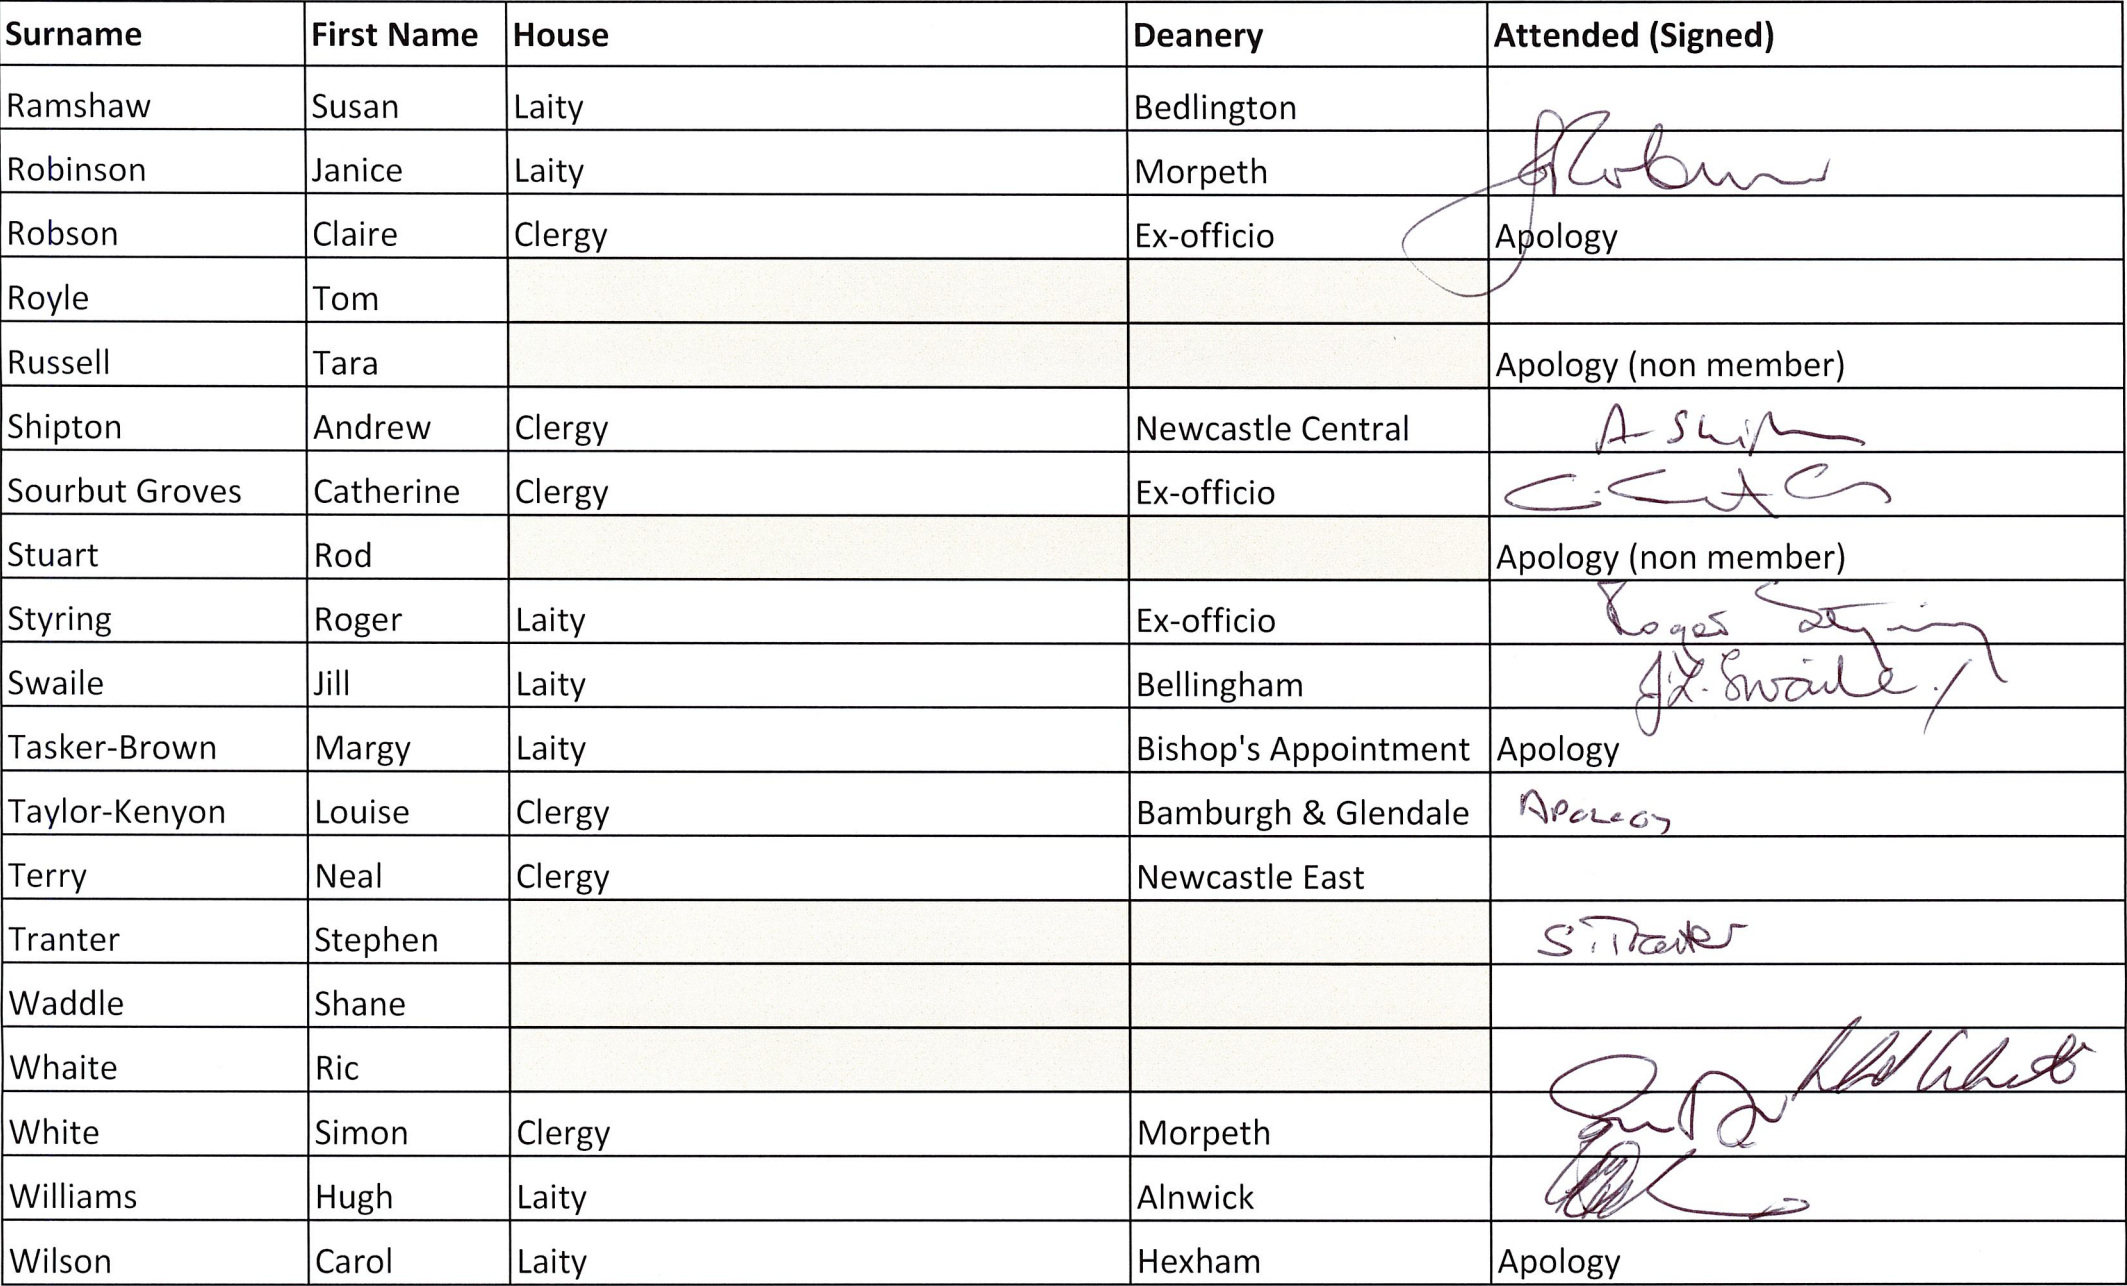 Surname First Name House Deanery Attended (Signed)
Ramshaw Susan Laity Bedlington
Robinson Janice Laity Morpeth
Robson Claire Clergy Ex-officio Apology
Royle Tom
Russell Tara Apology (non member)
Shipton Andrew Clergy Newcastle Central
Sourbut Groves Catherine Clergy Ex-officio
Stuart Rod Apology (non member)
Styring Roger Laity Ex-officio Roger Styring
Swaile Jill Laity Bellingham J.L. Swaile.
Tasker-Brown Margy Laity Bishop's Appointment Apology
Taylor-Kenyon Louise Clergy Bamburgh & Glendale Apology
Terry Neal Clergy Newcastle East
Tranter Stephen S. Tranter
Waddle Shane
Whaite Ric
White Simon Clergy Morpeth
Williams Hugh Laity Alnwick
Wilson Carol Laity Hexham Apology